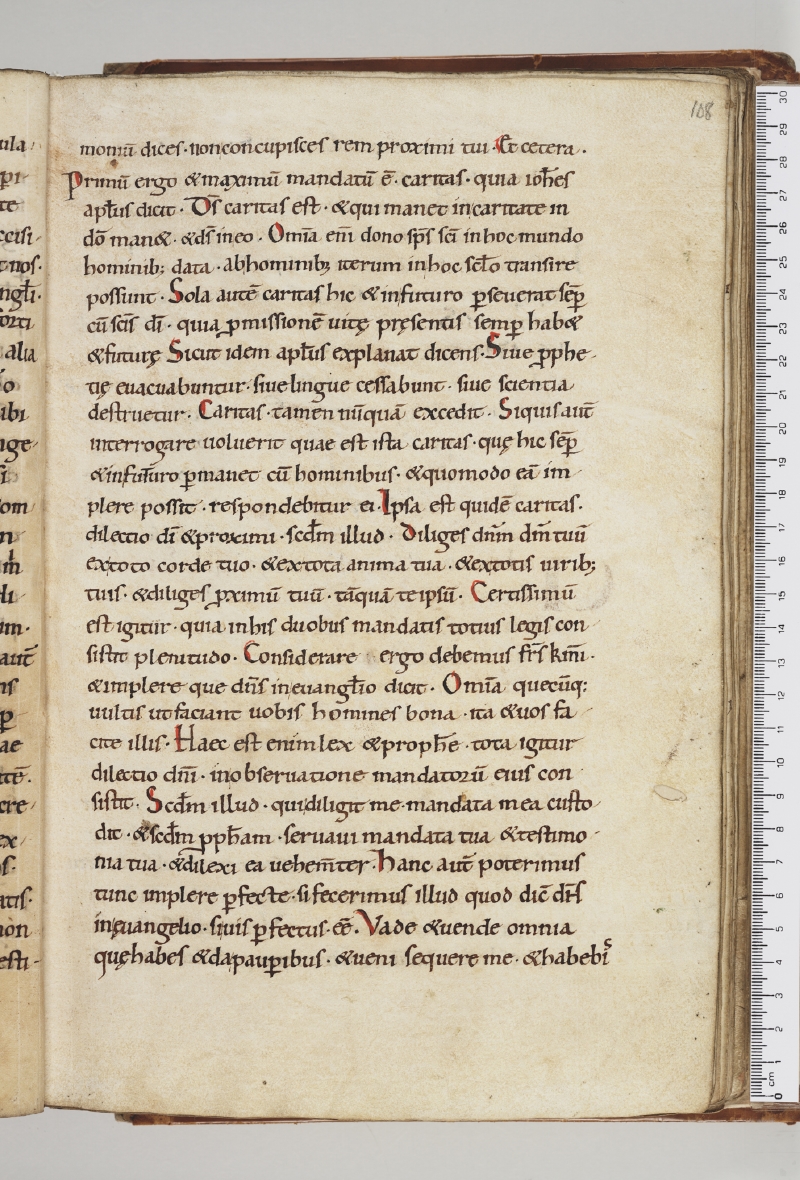 108
moniū dices · non concupisces rem proximi tui · Et cetera .
Primū ergo & maximū mandatū ē · caritas · quia ioh̄es
apl̄us dicit · D̄s caritas est · & qui manet in caritate in
dō man& · & d̄s in eo · Om̄ia eni̅ dono sp̄s sc̄i in hoc mundo
hominib; data · ab hominib; iterum in hoc sc̄lo transire
possunt · Sola autē caritas hic & in futuro ꝑseuerat sēꝑ
cū sc̄is dī · quia ꝓmissionē uitę pręsentis semꝑ hab&
& futurę Sicut idem apl̄us explanat dicens · Siue ꝓphe-
tię euacuabuntur · siue lingue cessabunt · siue scientia
destruetur · Caritas · tamen nūquā excedit · Siquis aut̄
interrogare uoluerit quae est ista caritas · quę hic sēꝑ
& in futuro ꝑmanet cū hominibus · & quomodo eā im
plere possit · respondebitur ei · Ipsa est quidē caritas ·
dilectio dī & proximi · scd̄m illud · Diliges dn̄m dm̄ tuū
ex toto corde tuo · & ex tota anima tua · & ex totis uirib;
tuis · & diliges ꝓximū tuū · tāquā te ipsū · Certissimū
est igitur · quia in his duobus mandatis totius legis con
sistit plenitudo · Considerare ergo debemus fr̄s km̄i ·
& implere que dn̄s in euangl̄io dicit · Om̄ia quecūq:
uultis ut faciant uobis homines bona · ita & uos fa
cite illis · Haec est enim lex & proph̄e · tota igitur
dilectio dn̄i · in obseruatione mandatorū eius con
sistit · Scd̄m illud · qui diligit me · mandata mea custo
dit · & scd̄m ꝓph̄am · seruaui mandata tua & testimo
nia tua · & dilexi ea uehem̄ter · hanc aut̄ poterimus
tunc implere ꝑfecte · si fecerimus illud quod dic̄ dn̄s
in euangelio · si uis ꝑfectus · ēē · Vade & uende omnia
quę habes & da pauꝑibus · & ueni sequere me · & habebi᷒